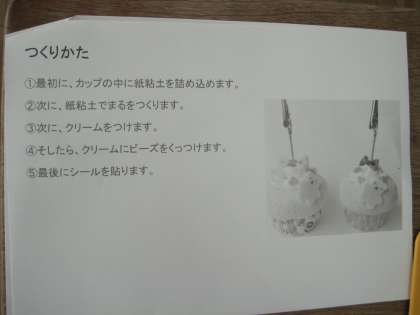 つくりかた
①最初に、カップの中に紙粘土を詰め込めます。
②次に、紙粘土でまるをつくります。
③次に、クリームをつけます。
④そしたら、クリームにビーズをくっつけます。
⑤最後にシールを貼ります。